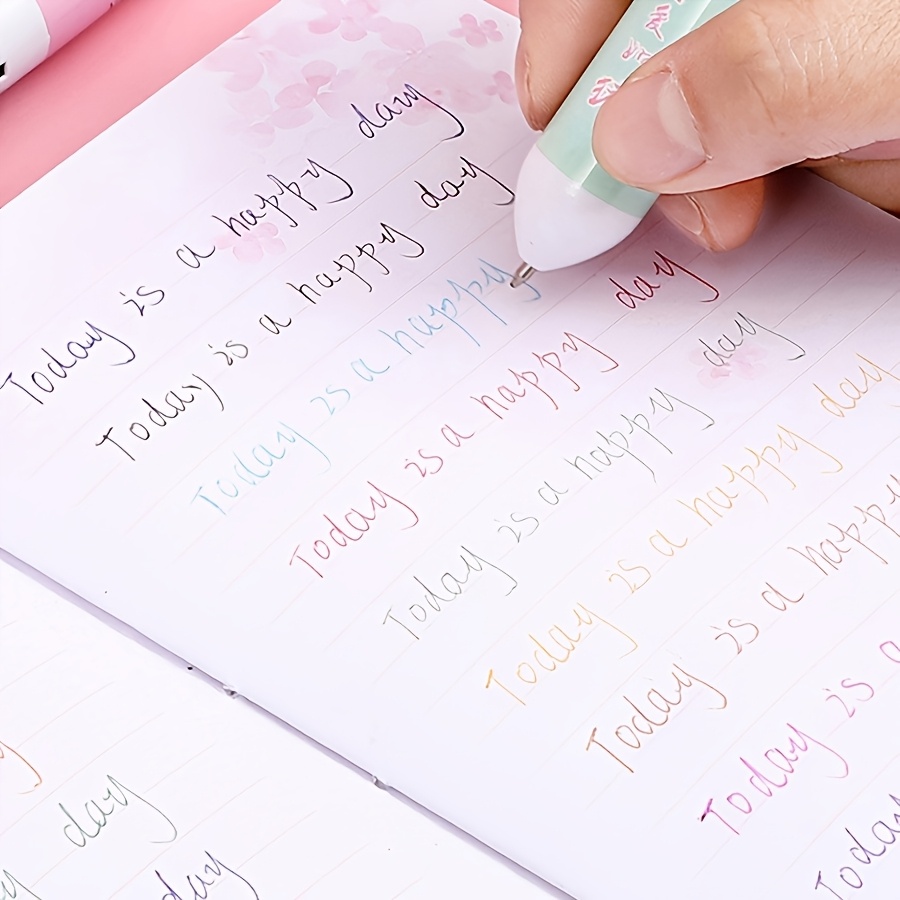 Today is a happy day
Today is a happy day
Today is a happy
Today is a happy day
Today is a happy day
Today is a happy day
Today is a happy
Today is a
Today
day
day